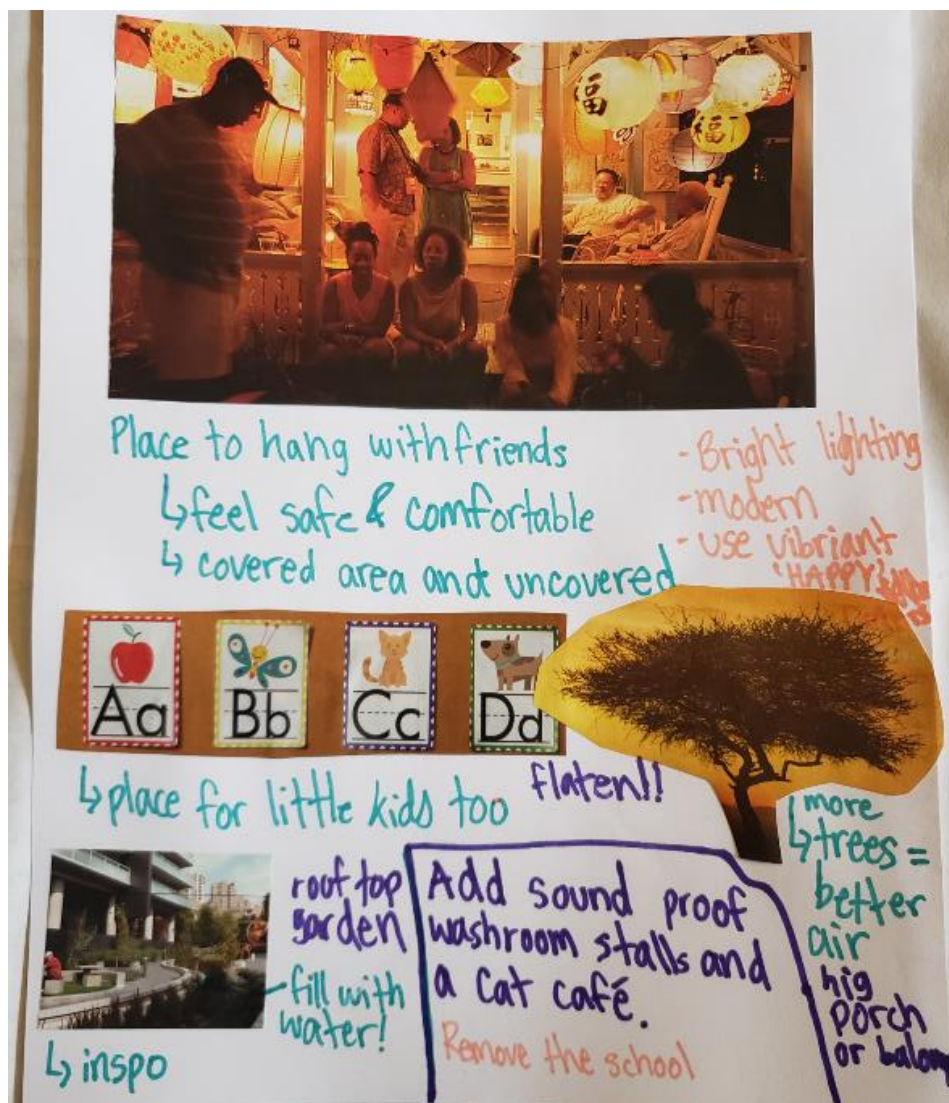 福
福
Place to hang with friends
↳ feel safe & comfortable
↳ covered area and uncovered
- Bright lighting
- modern
- use vibriant
'HAPPY'
Aa
Bb
Cc
Dd
↳ place for little kids too
flaten!!
↳ more
trees =
better
air
roof top
garden
- fill with
water!
↳ inspo
Add sound proof
washroom stalls and
a cat café.
Remove the school
porch
or